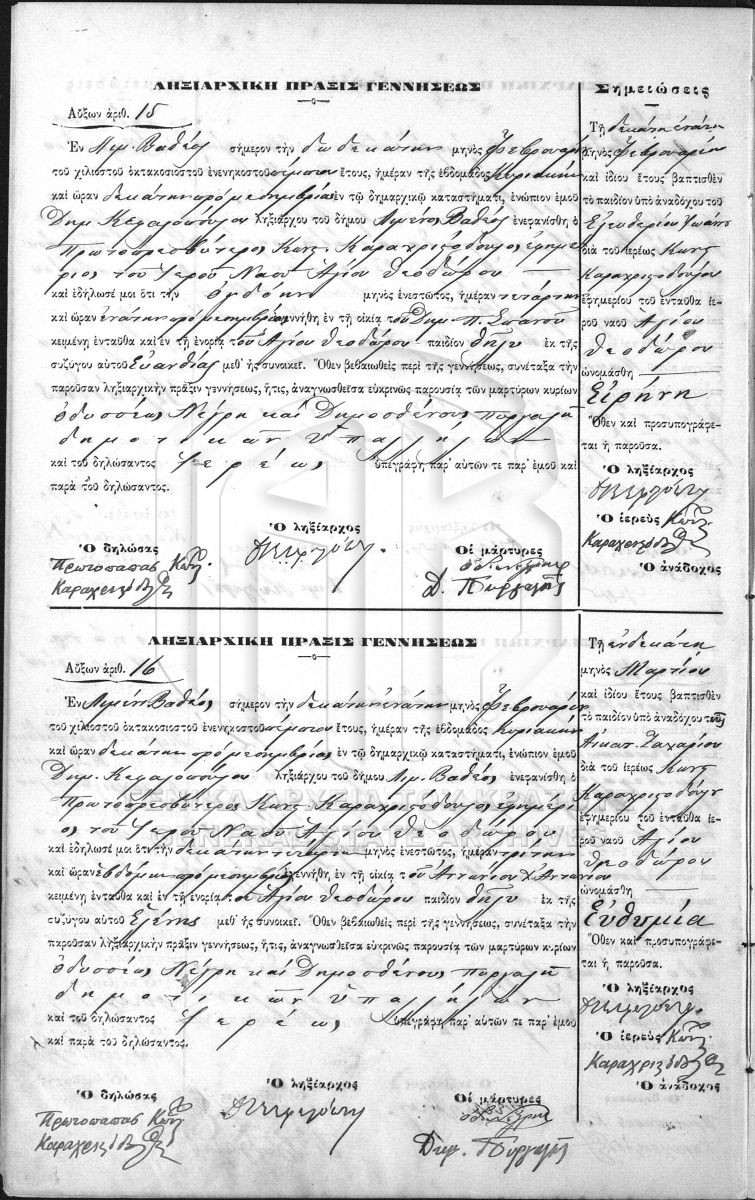 ΛΗΞΙΑΡΧΙΚΗ ΠΡΑΞΙΣ ΓΕΝΝΗΣΕΩΣ
Αὔξων ἀριθ. 15
Ἐν Λιμ. Βαθέος σήμερον τὴν δωδεκάτην μηνὸς Φεβρουαρίου
τοῦ χιλιοστοῦ ὀκτακοσιοστοῦ ἐνενηκοστοῦ πέμπτου ἔτους, ἡμέραν τῆς ἑβδομάδος Κυριακὴν
καὶ ὥραν δεκάτην πρὸ μεσημβρίας ἐν τῷ δημαρχικῷ καταστήματι, ἐνώπιον ἐμοῦ
Δημ. Κεφαλοπούλου ληξιάρχου τοῦ δήμου Λιμένος Βαθέος ἐνεφανίσθη ὁ
Πρωτοπρεσβύτερος Κωνς. Καραχριστόδουλος ἐφημέ
ριος τοῦ Ἱεροῦ Ναοῦ Ἁγίου Θεοδώρου
καὶ ἐδήλωσέ μοι ὅτι τὴν ὀγδόην μηνὸς ἐνεστῶτος, ἡμέραν τετάρτην
καὶ ὥραν ἐνάτην πρὸ μεσημβρίας ἐγεννήθη ἐν τῇ οἰκίᾳ τοῦ Δημ. Π. Σπανοῦ
κειμένῃ ἐνταῦθα καὶ ἐν τῇ ἐνορίᾳ τοῦ Ἁγίου Θεοδώρου παιδίον θῆλυ ἐκ τῆς
συζύγου αὐτοῦ Εὐανθίας μεθ' ἧς συνοικεῖ. Ὅθεν βεβαιωθεὶς περὶ τῆς γεννήσεως, συνέταξα τὴν
παροῦσαν ληξιαρχικὴν πρᾶξιν γεννήσεως, ἥτις, ἀναγνωσθεῖσα εὐκρινῶς παρουσίᾳ τῶν μαρτύρων κυρίων
Ὀδυσσέως Νέγρη καὶ Δημοσθένους Πυργαλῆ
δημοτικῶν ὑπαλλήλων
καὶ τοῦ δηλώσαντος Ἱερέως ὑπεγράφη παρ' αὐτῶν τε παρ' ἐμοῦ καὶ
παρὰ τοῦ δηλώσαντος.
Ὁ δηλώσας
Ὁ ληξίαρχος
Οἱ μάρτυρες
Πρωτοπαπας Κων.
Δ. Πυργαλῆς
Σημειώσεις
Τῇ δεκάτῃ ἐνάτῃ
μηνὸς Φεβρουαρίου
καὶ ἰδίου ἔτους βαπτισθὲν
τὸ παιδίον ὑπὸ ἀναδόχου τοῦ
Ἐλευθερίου Ἰωάνν
διὰ τοῦ ἱερέως Κωνς
Καραχριστοδούλου
ἐφημερίου τοῦ ἐνταῦθα ἱε-
ροῦ ναοῦ Ἁγίου
Θεοδώρου
ὠνομάσθη
Εἰρήνη
Ὅθεν καὶ προσυπογράφε-
ται ἡ παροῦσα.
Ὁ ληξίαρχος
Ὁ ἱερεὺς Κων.
Ὁ ἀνάδοχος
ΛΗΞΙΑΡΧΙΚΗ ΠΡΑΞΙΣ ΓΕΝΝΗΣΕΩΣ
Αὔξων ἀριθ. 16
Ἐν Λιμένι Βαθέος σήμερον τὴν δεκάτην ἐνάτην μηνὸς Φεβρουαρίου
τοῦ χιλιοστοῦ ὀκτακοσιοστοῦ ἐνενηκοστοῦ πέμπτου ἔτους, ἡμέραν τῆς ἑβδομάδος Κυριακὴν
καὶ ὥραν δεκάτην πρὸ μεσημβρίας ἐν τῷ δημαρχικῷ καταστήματι, ἐνώπιον ἐμοῦ
Δημ. Κεφαλοπούλου ληξιάρχου τοῦ δήμου Λιμ. Βαθέος ἐνεφανίσθη ὁ
Πρωτοπρεσβύτερος Κωνς. Καραχριστόδουλος ἐφημέρι
ος τοῦ Ἱεροῦ Ναοῦ Ἁγίου Θεοδώρου
καὶ ἐδήλωσέ μοι ὅτι τὴν δεκάτην τετάρτην μηνὸς ἐνεστῶτος, ἡμέραν τρίτην
καὶ ὥραν ἑβδόμην πρὸ μεσημβρίας ἐγεννήθη ἐν τῇ οἰκίᾳ τοῦ Ἀντωνίου Χ Ἀντωνίου
κειμένῃ ἐνταῦθα καὶ ἐν τῇ ἐνορίᾳ τοῦ Ἁγίου Θεοδώρου παιδίον θῆλυ ἐκ τῆς
συζύγου αὐτοῦ Ἑλένης μεθ' ἧς συνοικεῖ. Ὅθεν βεβαιωθεὶς περὶ τῆς γεννήσεως, συνέταξα τὴν
παροῦσαν ληξιαρχικὴν πρᾶξιν γεννήσεως, ἥτις, ἀναγνωσθεῖσα εὐκρινῶς παρουσίᾳ τῶν μαρτύρων κυρίων
Ὀδυσσέως Νέγρη καὶ Δημοσθένους Πυργαλῆ
δημοτικῶν ὑπαλλήλων
καὶ τοῦ δηλώσαντος Ἱερέως ὑπεγράφη παρ' αὐτῶν τε παρ' ἐμοῦ
καὶ παρὰ τοῦ δηλώσαντος.
Ὁ δηλώσας
Ὁ ληξίαρχος
Οἱ μάρτυρες
Πρωτοπαπας Κων.
Δημ. Πυργαλῆς
Τῇ ἑνδεκάτῃ
μηνὸς Μαρτίου
καὶ ἰδίου ἔτους βαπτισθὲν
τὸ παιδίον ὑπὸ ἀναδόχου τῆς
Αἰκατ. Ζαχαρίου
διὰ τοῦ ἱερέως Κωνς
Καραχριστοδούλου
ἐφημερίου τοῦ ἐνταῦθα ἱε-
ροῦ ναοῦ Ἁγίου
Θεοδώρου
ὠνομάσθη
Εὐθυμία
Ὅθεν καὶ προσυπογράφε-
ται ἡ παροῦσα.
Ὁ ληξίαρχος
Ὁ ἱερεὺς Κων.
Ὁ ἀνάδοχος